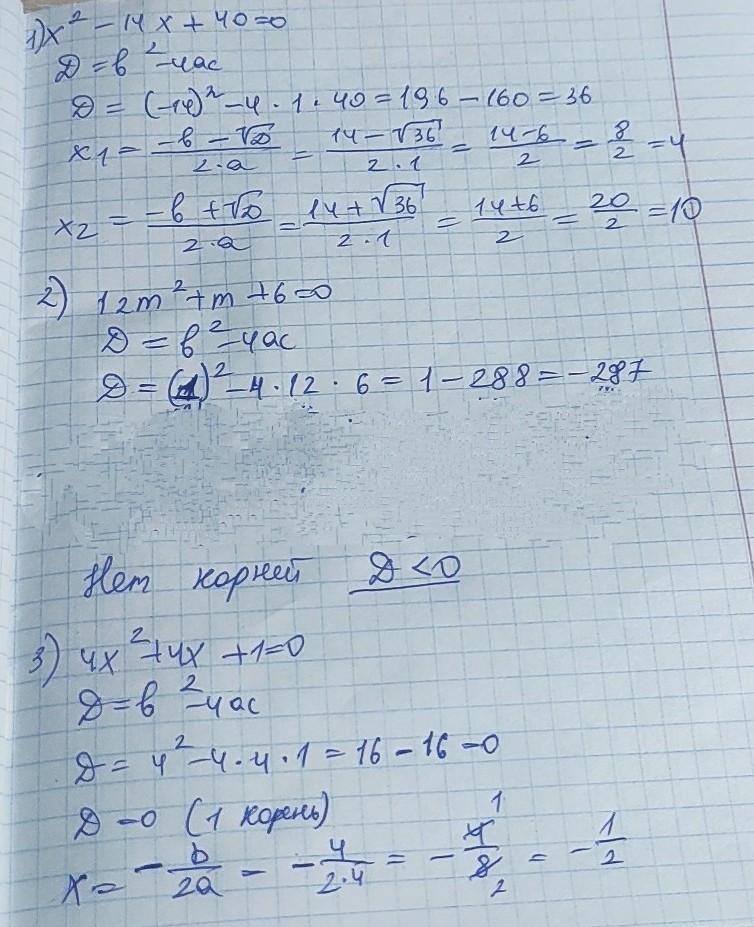 1) x² - 14x + 40 = 0
D = b² - 4ac
D = (-14)² - 4 · 1 · 40 = 196 - 160 = 36
x1 = (-b - √D)/(2·a) = (14 - √36)/(2·1) = (14-6)/2 = 8/2 = 4
x2 = (-b + √D)/(2·a) = (14 + √36)/(2·1) = (14+6)/2 = 20/2 = 10
2) 12m² + m + 6 = 0
D = b² - 4ac
D = (1)² - 4 · 12 · 6 = 1 - 288 = -287
Нет корней D < 0
3) 4x² + 4x + 1 = 0
D = b² - 4ac
D = 4² - 4 · 4 · 1 = 16 - 16 = 0
D = 0 (1 корень)
x = -b/(2a) = -4/(2·4) = -4/8 1 2 = -1/2